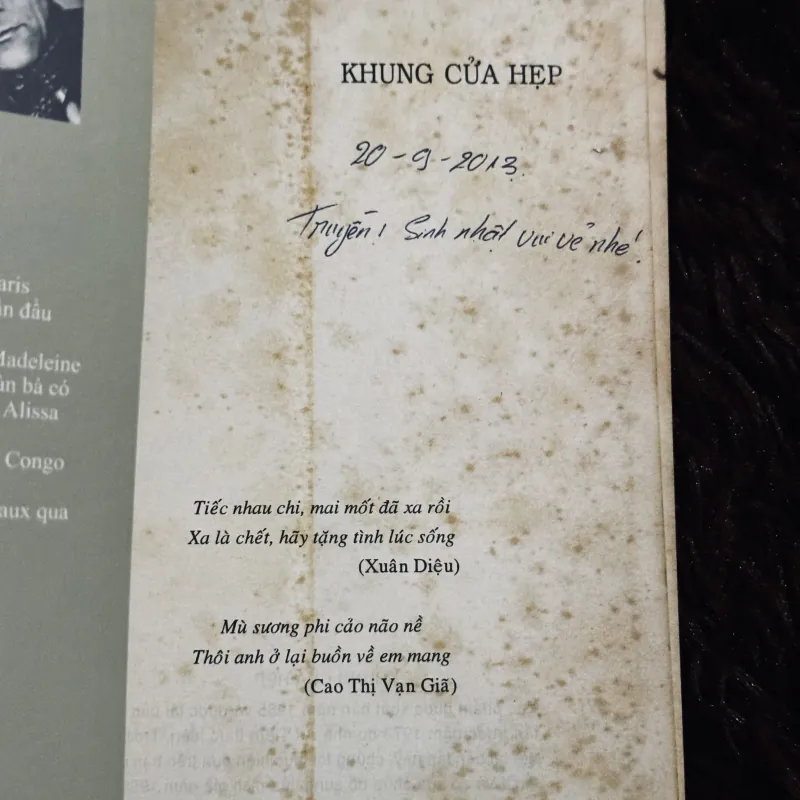 aris
ần đầu
Madeleine
àn bà có
Alissa
Congo
aux qua
KHUNG CỬA HẸP
20-9-2013.
Truyền! Sinh nhật vui vẻ nhé!
Tiếc nhau chi, mai mốt đã xa rồi
Xa là chết, hãy tặng tình lúc sống
(Xuân Diệu)
Mù sương phi cảo não nề
Thôi anh ở lại buồn về em mang
(Cao Thị Vạn Giã)